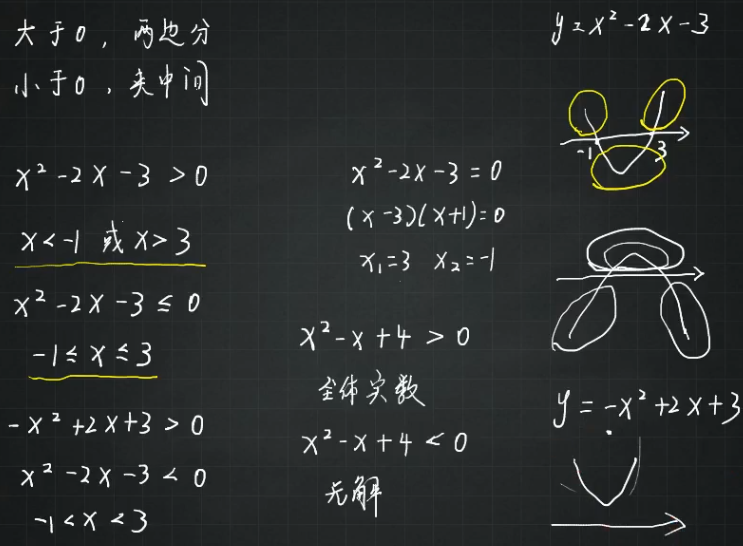 大于0，两边分
小于0，夹中间
x²-2x-3>0
x<-1 或 x>3
x²-2x-3≤0
-1≤x≤3
-x²+2x+3>0
x²-2x-3<0
-1<x<3
x²-2x-3=0
(x-3)(x+1)=0
x₁=3 x₂=-1
x²-x+4>0
全体实数
x²-x+4<0
无解
y=x²-2x-3
-1 3
y=-x²+2x+3